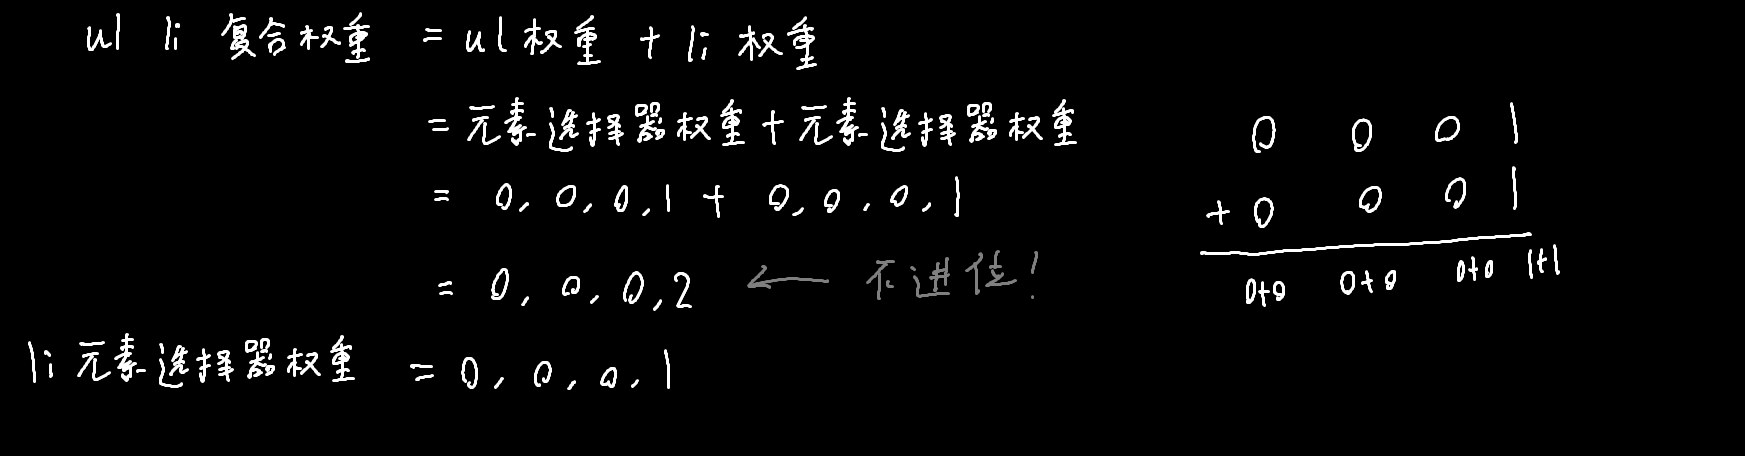 ul li 复合权重 = ul权重 + li 权重
= 元素选择器权重 + 元素选择器权重
= 0, 0, 0, 1 + 0, 0, 0, 1
= 0, 0, 0, 2 ← 不进位!
li 元素选择器权重 = 0, 0, 0, 1
0 0 0 1
+ 0 0 0 1
0+0 0+0 0+0 1+1